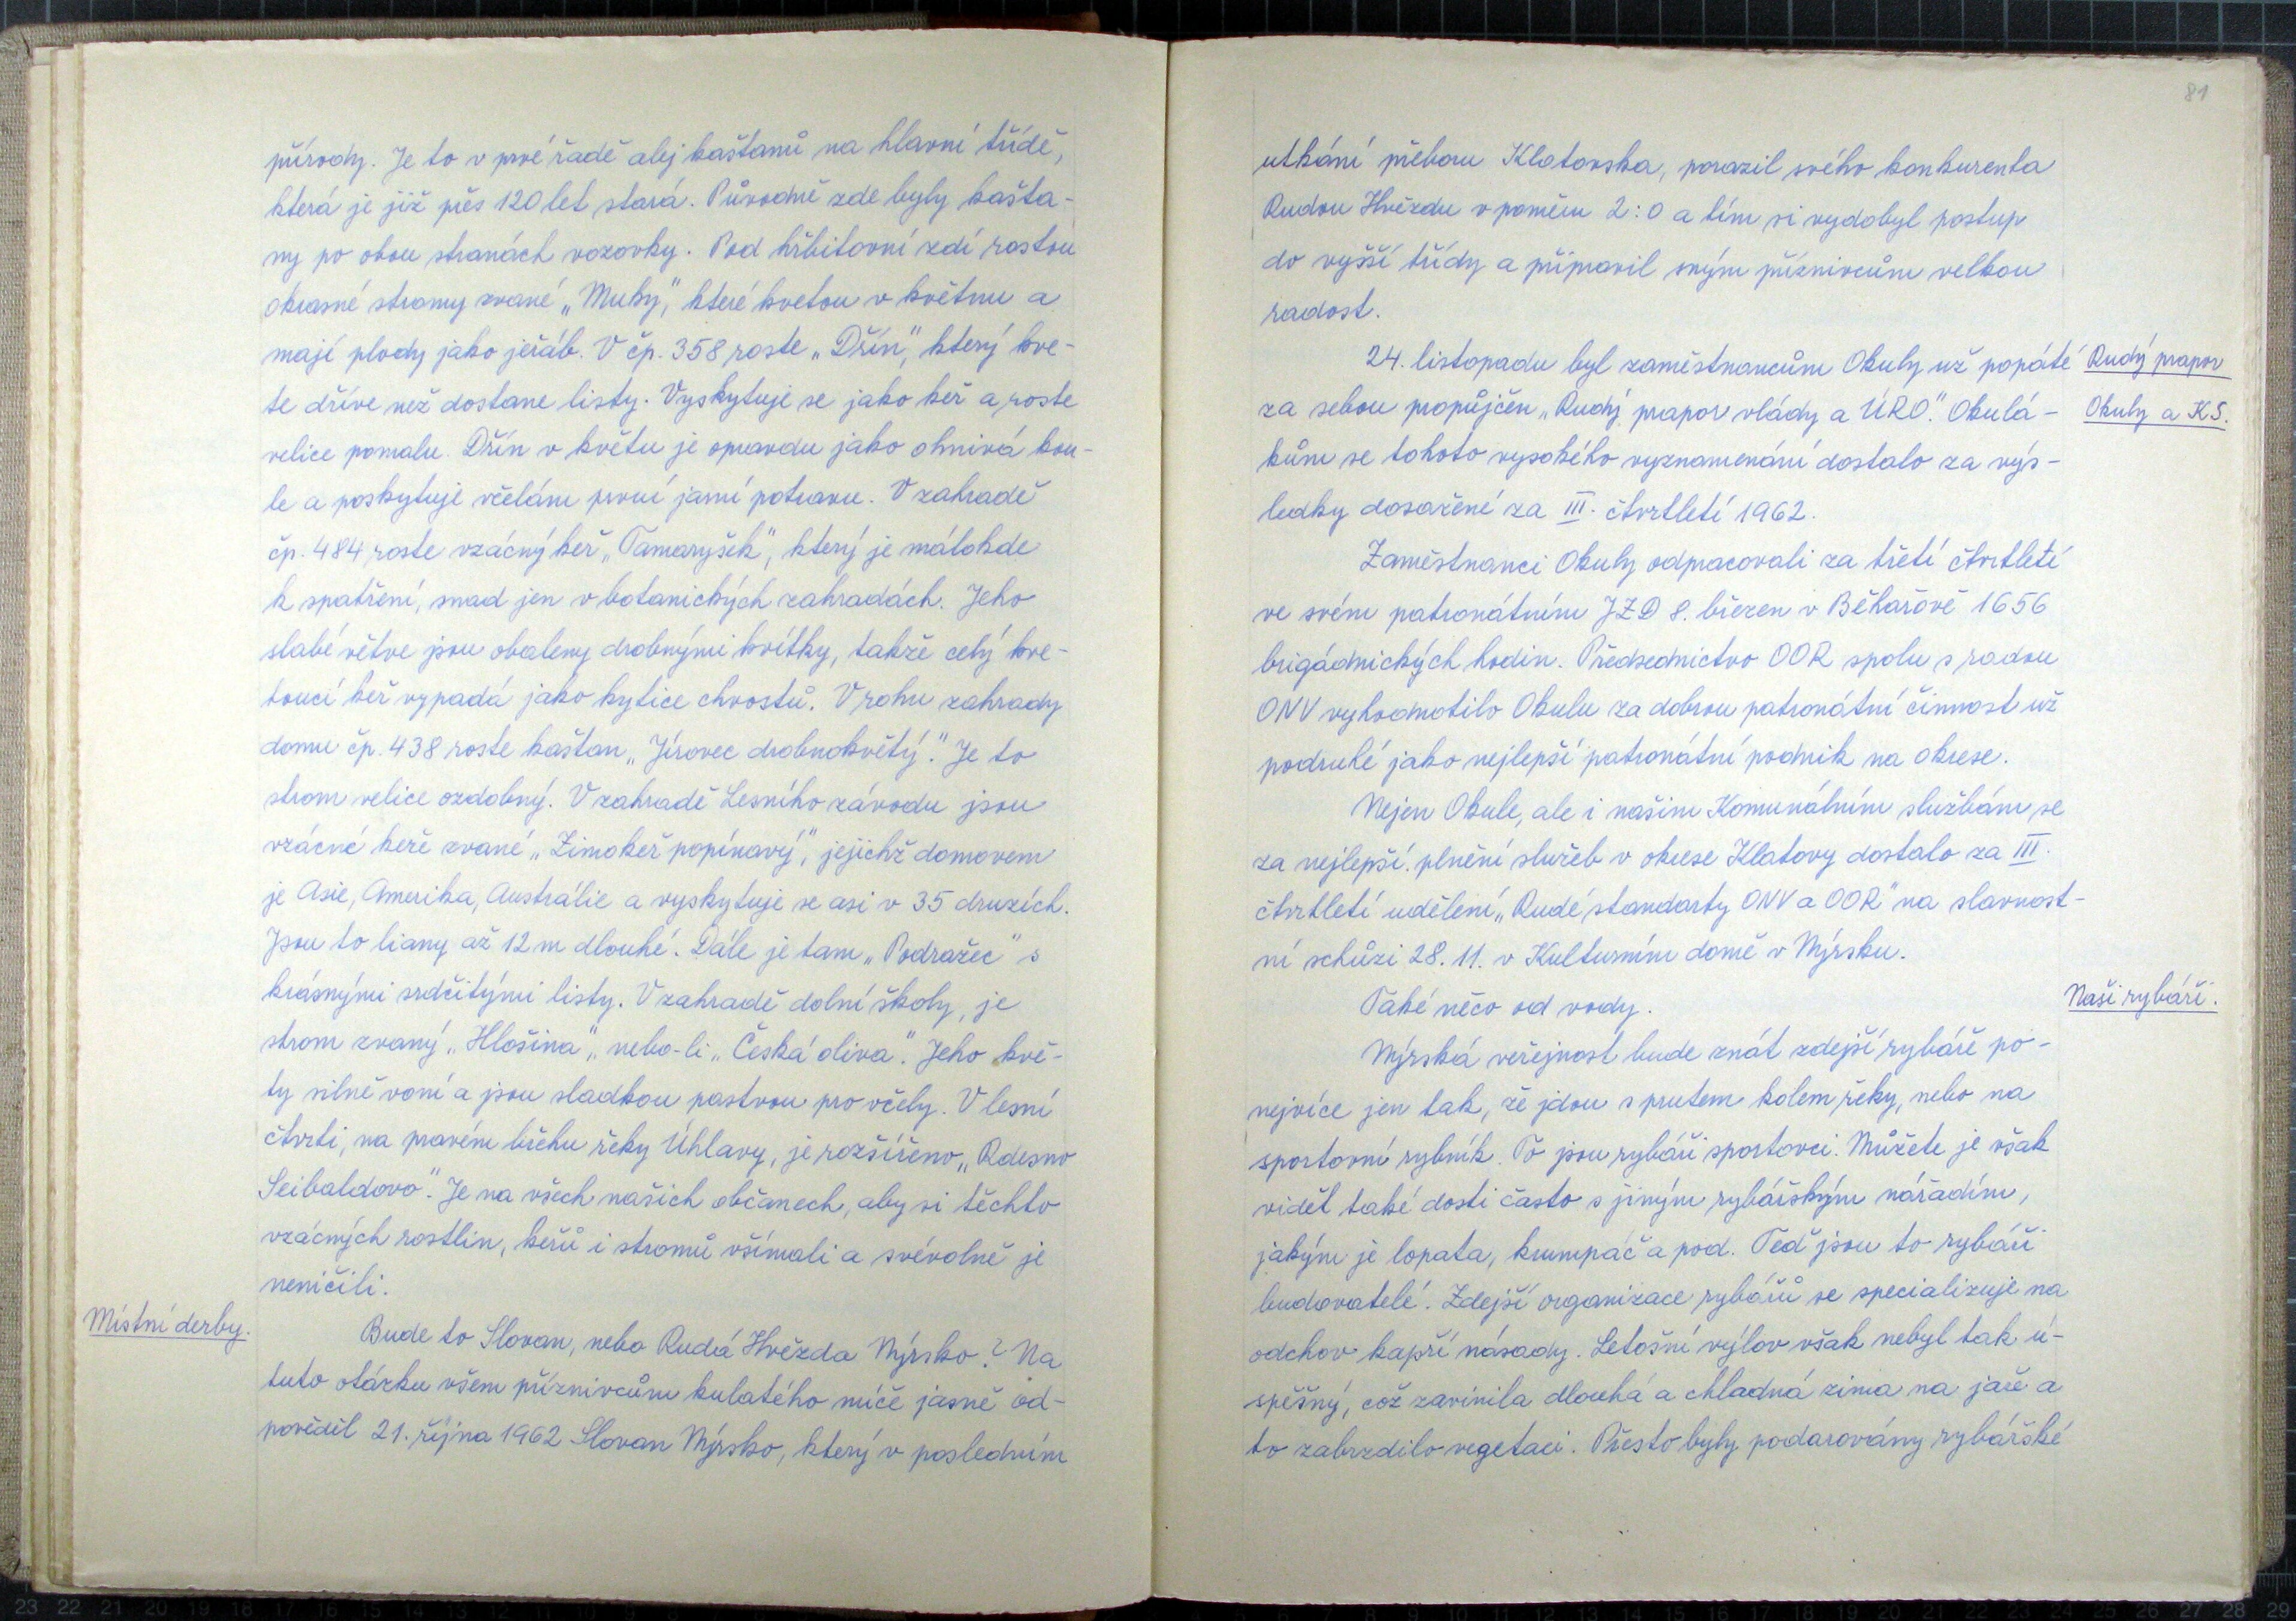 přírody. Je to v prvé řadě alej kaštanů na hlavní třídě,
která je již přes 120 let stará. Původně zde byly kašta-
ny po obou stranách vozovky. Pod hřbitovní zdí rostou
okrasné stromy zvané „Muky“, které kvetou v květnu a
mají plody jako jeřáb. V čp. 358 roste „Dřín“, který kve-
te dříve než dostane listy. Vyskytuje se jako keř a roste
velice pomalu. Dřín v květu je opravdu jako ohnivá kou-
le a poskytuje včelám první jarní potravu. V zahradě
čp. 484 roste vzácný keř „Tamaryšek“, který je málokde
k spatření, snad jen v botanických zahradách. Jeho
slabé větve jsou obaleny drobnými kvítky, takže celý kve-
toucí keř vypadá jako kytice chvostů. V rohu zahrady
domu čp. 438 roste kaštan „Jírovec drobnokvětý“. Je to
strom velice ozdobný. V zahradě Lesního závodu jsou
vzácné keře zvané „Zimokeř popínavý“, jejichž domovem
je Asie, Amerika, Austrálie a vyskytuje se asi v 35 druzích.
Jsou to liany až 12 m dlouhé. Dále je tam „Podražec“ s
krásnými srdčitými listy. V zahradě dolní školy, je
strom zvaný „Hlošina“, nebo-li „Česká oliva“. Jeho kvě-
ty silně voní a jsou sladkou pastvou pro včely. V lesní
čtvrti, na pravém břehu řeky Úhlavy, je rozšířeno „Rdesno
Seiboldovo“. Je na všech našich občanech, aby si těchto
vzácných rostlin, keřů i stromů všímali a svévolně je
neničili.
Místní derby.
Bude to Slovan, nebo Rudá Hvězda Nýrsko? Na
tuto otázku všem příznivcům kulatého míče jasně od-
pověděl 21. října 1962 Slovan Nýrsko, který v posledním
81
utkání přeboru Klatovska, porazil svého konkurenta
Rudou Hvězdu v poměru 2:0 a tím si vydobyl postup
do vyšší třídy a připravil svým příznivcům velkou
radost.
24. listopadu byl zaměstnancům Okuly už popáté
Rudý prapor
za sebou propůjčen „Rudý prapor vlády a ÚRO“. Okulá-
Okuly a K.S.
kům se tohoto vysokého vyznamenání dostalo za výs-
ledky dosažené za III. čtvrtletí 1962.
Zaměstnanci Okuly odpracovali za třetí čtvrtletí
ve svém patronátním JZD 8. březen v Běhařově 1656
brigádnických hodin. Předsednictvo OOR spolu s radou
ONV vyhodnotilo Okulu za dobrou patronátní činnost už
podruhé jako nejlepší patronátní podnik na okrese.
Nejen Okule, ale i našim Komunálním službám se
za nejlepší plnění služeb v okrese Klatovy dostalo za III.
čtvrtletí udělení „Rudé standarty ONV a OOR“ na slavnost-
ní schůzi 28. 11. v Kulturním domě v Nýrsku.
Také něco od vody.
Naši rybáři.
Nýrská veřejnost bude znát zdejší rybáře po-
nejvíce jen tak, že jdou s prutem kolem řeky, nebo na
sportovní rybník. To jsou rybáři sportovci. Můžete je však
vidět také dosti často s jiným rybářským nářadím,
jakým je lopata, krumpáč a pod. Teď jsou to rybáři
budovatelé. Zdejší organizace rybářů se specializuje na
odchov kapří násady. Letošní výlov však nebyl tak ú-
spěšný, což zavinila dlouhá a chladná zima na jaře a
to zabrzdilo vegetaci. Přesto byly podarovány rybářské